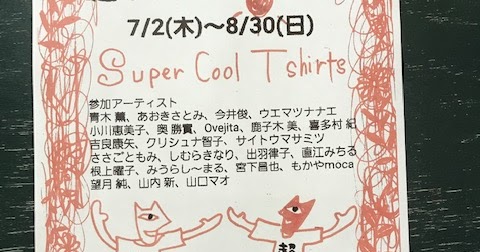 7/2(木)〜8/30(日)
Super Cool Tshirts
参加アーティスト
青木 薫、あおきさとみ、今井俊、ウエマツナナエ
小川恵美子、奥 勝實、Ovejita、鹿子木 美、喜多村 紀
吉良康矢、クリシュナ智子、サイトウマサミツ
ささごともみ、しむらきなり、出羽律子、直江みちる
根上曜子、みうらし〜まる、宮下昌也、もかやmoca
望月 純、山内 新、山口マオ